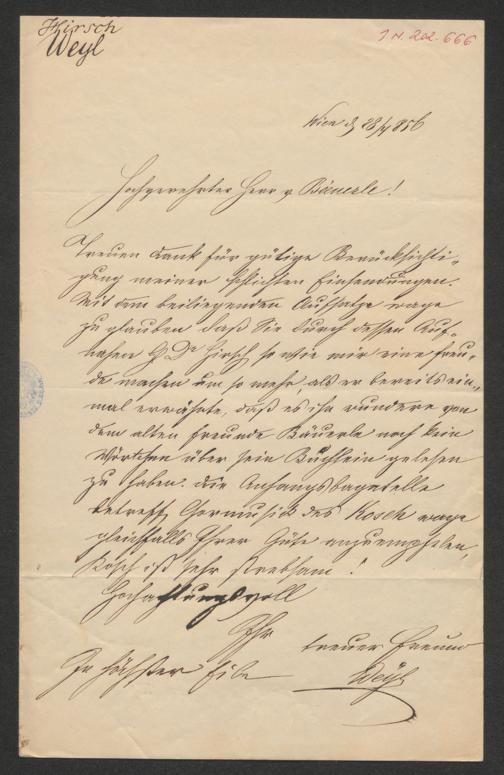 Hirsch
Weyl
I.N. 202.666
Wien d 28/ 856
Hochverehrter Herr v Bäuerle!
Treuen Dank für gütige Berücksichti-
gung meiner Einsendungen.
Mit dem beiliegenden Aufsatze wage
zu glauben daß Sie durch dessen Auf-
nahme H Dr Hirsch so wie mir eine Freu-
de machen um so mehr, als er bereits ein-
mal erwähnte, daß es ihn wundere von
dem alten Freunde Bäuerle noch kein
Wörtchen über sein Büchlein gelesen
zu haben. Die
betreff des Kosch wage
gleichfalls Ihrer Güte anzuempfehlen,
Kosch ist sehr strebsam!
Hochachtungsvoll
Ihr
treuer Freund
In höchster Eile
Weyl